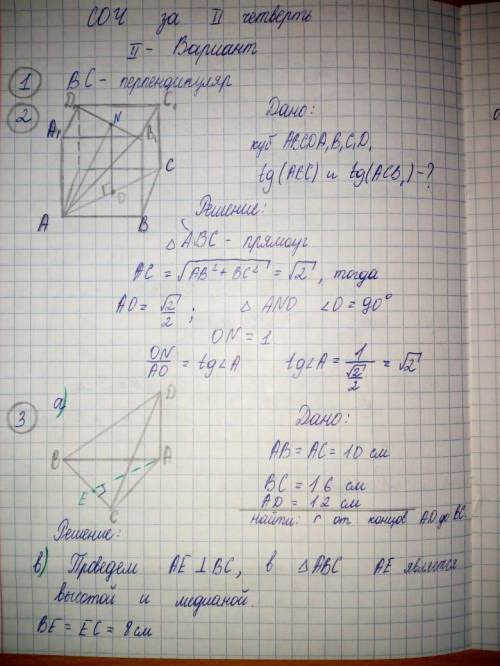 СОЧ за II четверть
II - Вариант
1 BC - перпендикуляр
2
D₁ C₁
N
A₁ B₁
C
O
A B
Дано:
куб ABCDA₁B₁C₁D₁
и tg(ACB₁) - ?
Решение:
△ABC - прямоуг
AC = √(AB² + BC²) = √2, тогда
AO = √2/2; △ANO ∠O = 90°
ON = 1
ON/AO = tg∠A tg∠A = 1/(√2/2) = √2
3 а)
D
B A
E
C
Дано:
AB = AC = 10 см
BC = 16 см
AD = 12 см
Найти: r от концов AD до BC.
Решение:
в) Проведем AE ⊥ BC, в △ABC AE является
высотой и медианой.
BE = EC = 8 см